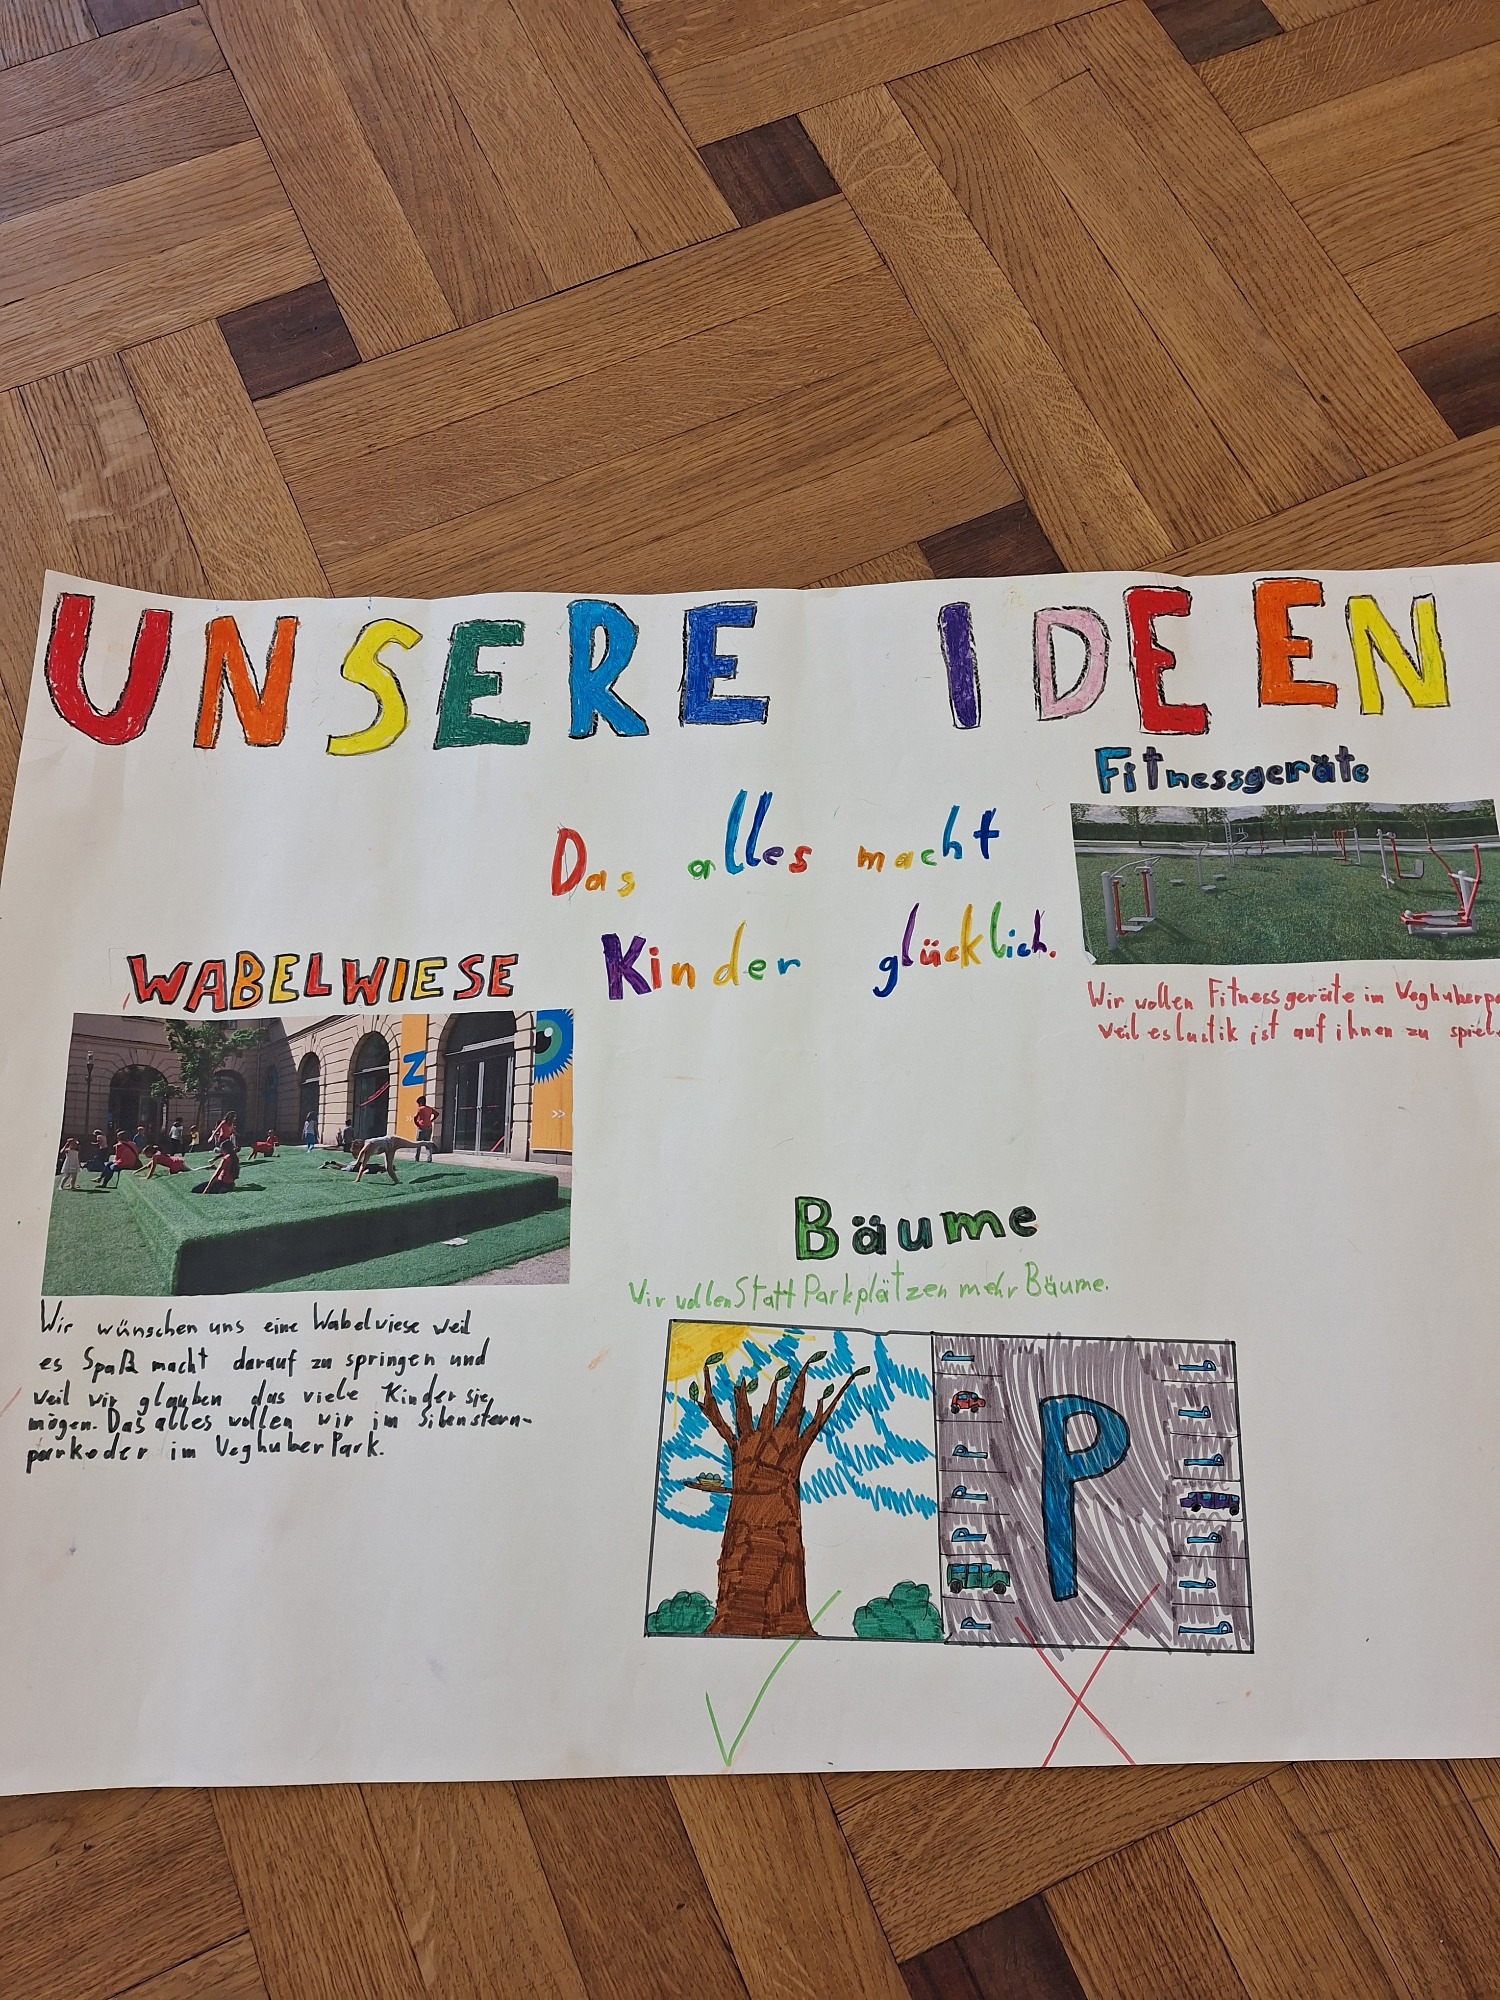 UNSERE IDEEN
Das alles macht
Kinder glücklich.
Fitnessgeräte
Wir wollen Fitnessgeräte im Veghuberpa
weil es lustik ist auf ihnen zu spiel
WABELWIESE
Z
>>
Wir wünschen uns eine Wabelwiese weil
es Spaß macht darauf zu springen und
weil wir glauben das viele Kinder sie
mögen. Das alles wollen wir im Sibenstern-
park oder im Veghuber Park.
Bäume
Wir wollen Statt Parkplätzen mehr Bäume.
P
P
P
P
P
P
P
P
P
P
P
P